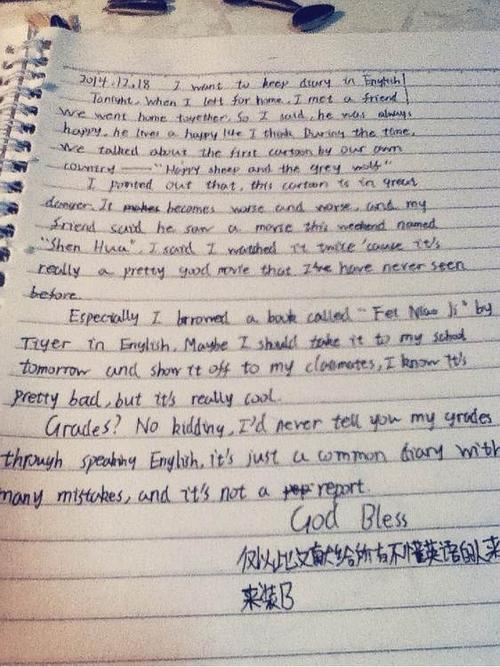 2014.12.18 I want to keep diary in English!
Tonight, When I left for home, I met a friend
We went home together, So I said, he was always
happy, he lives a happy life I think During the time,
We talked about the first cartoon by our own
country —— "Happy sheep and the grey wolf"
I pointed out that, this cartoon is in great
danger. It makes becomes worse and worse, and my
friend said he saw a movie this weekend named
"Shen Hua", I said I watched it twice 'cause it's
really a pretty good movie that I've have never seen
before.
Especially I borrowed a book called "Fei Niao Ji" by
Tiger in English, Maybe I should take it to my school
tomorrow and show it off to my classmates, I know it's
pretty bad, but it's really cool.
Grades? No kidding, I'd never tell you my grades
through speaking English, it's just a common diary with
many mistakes, and it's not a report.
God Bless
仅以此文献给所有不懂英语的人来
来装B